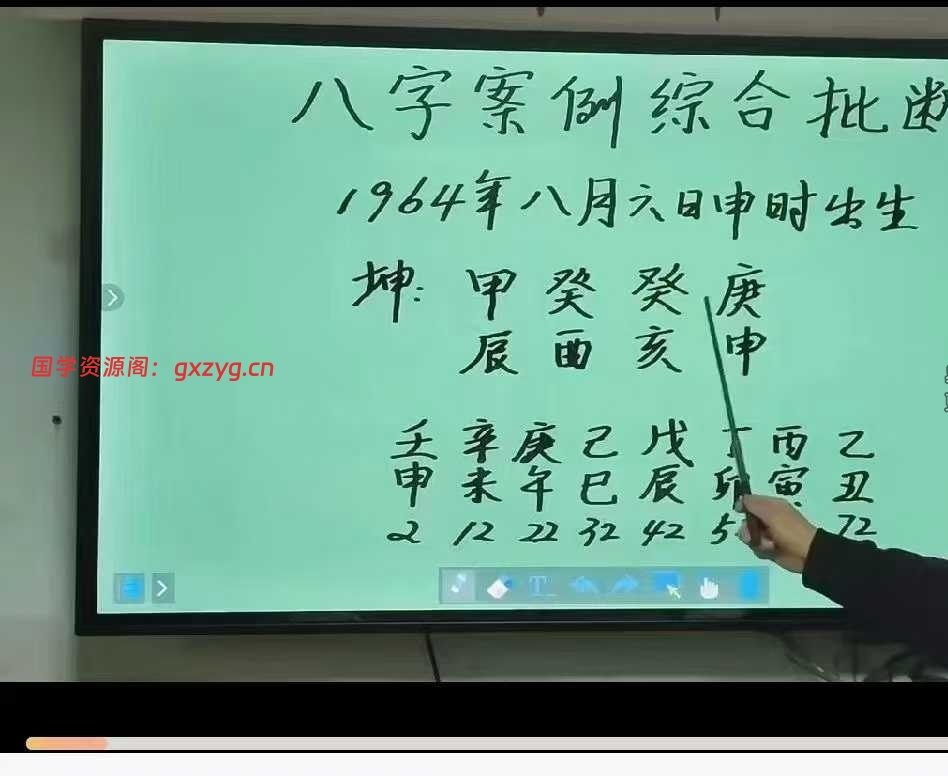 八字案例综合批断
1964年八月六日申时出生
坤: 甲 癸 癸 庚
辰 酉 亥 申
国学资源阁: gxzyg.cn
壬 辛 庚 己 戊 丁 丙 乙
申 未 午 巳 辰 卯 寅 丑
2 12 22 32 42 5 72